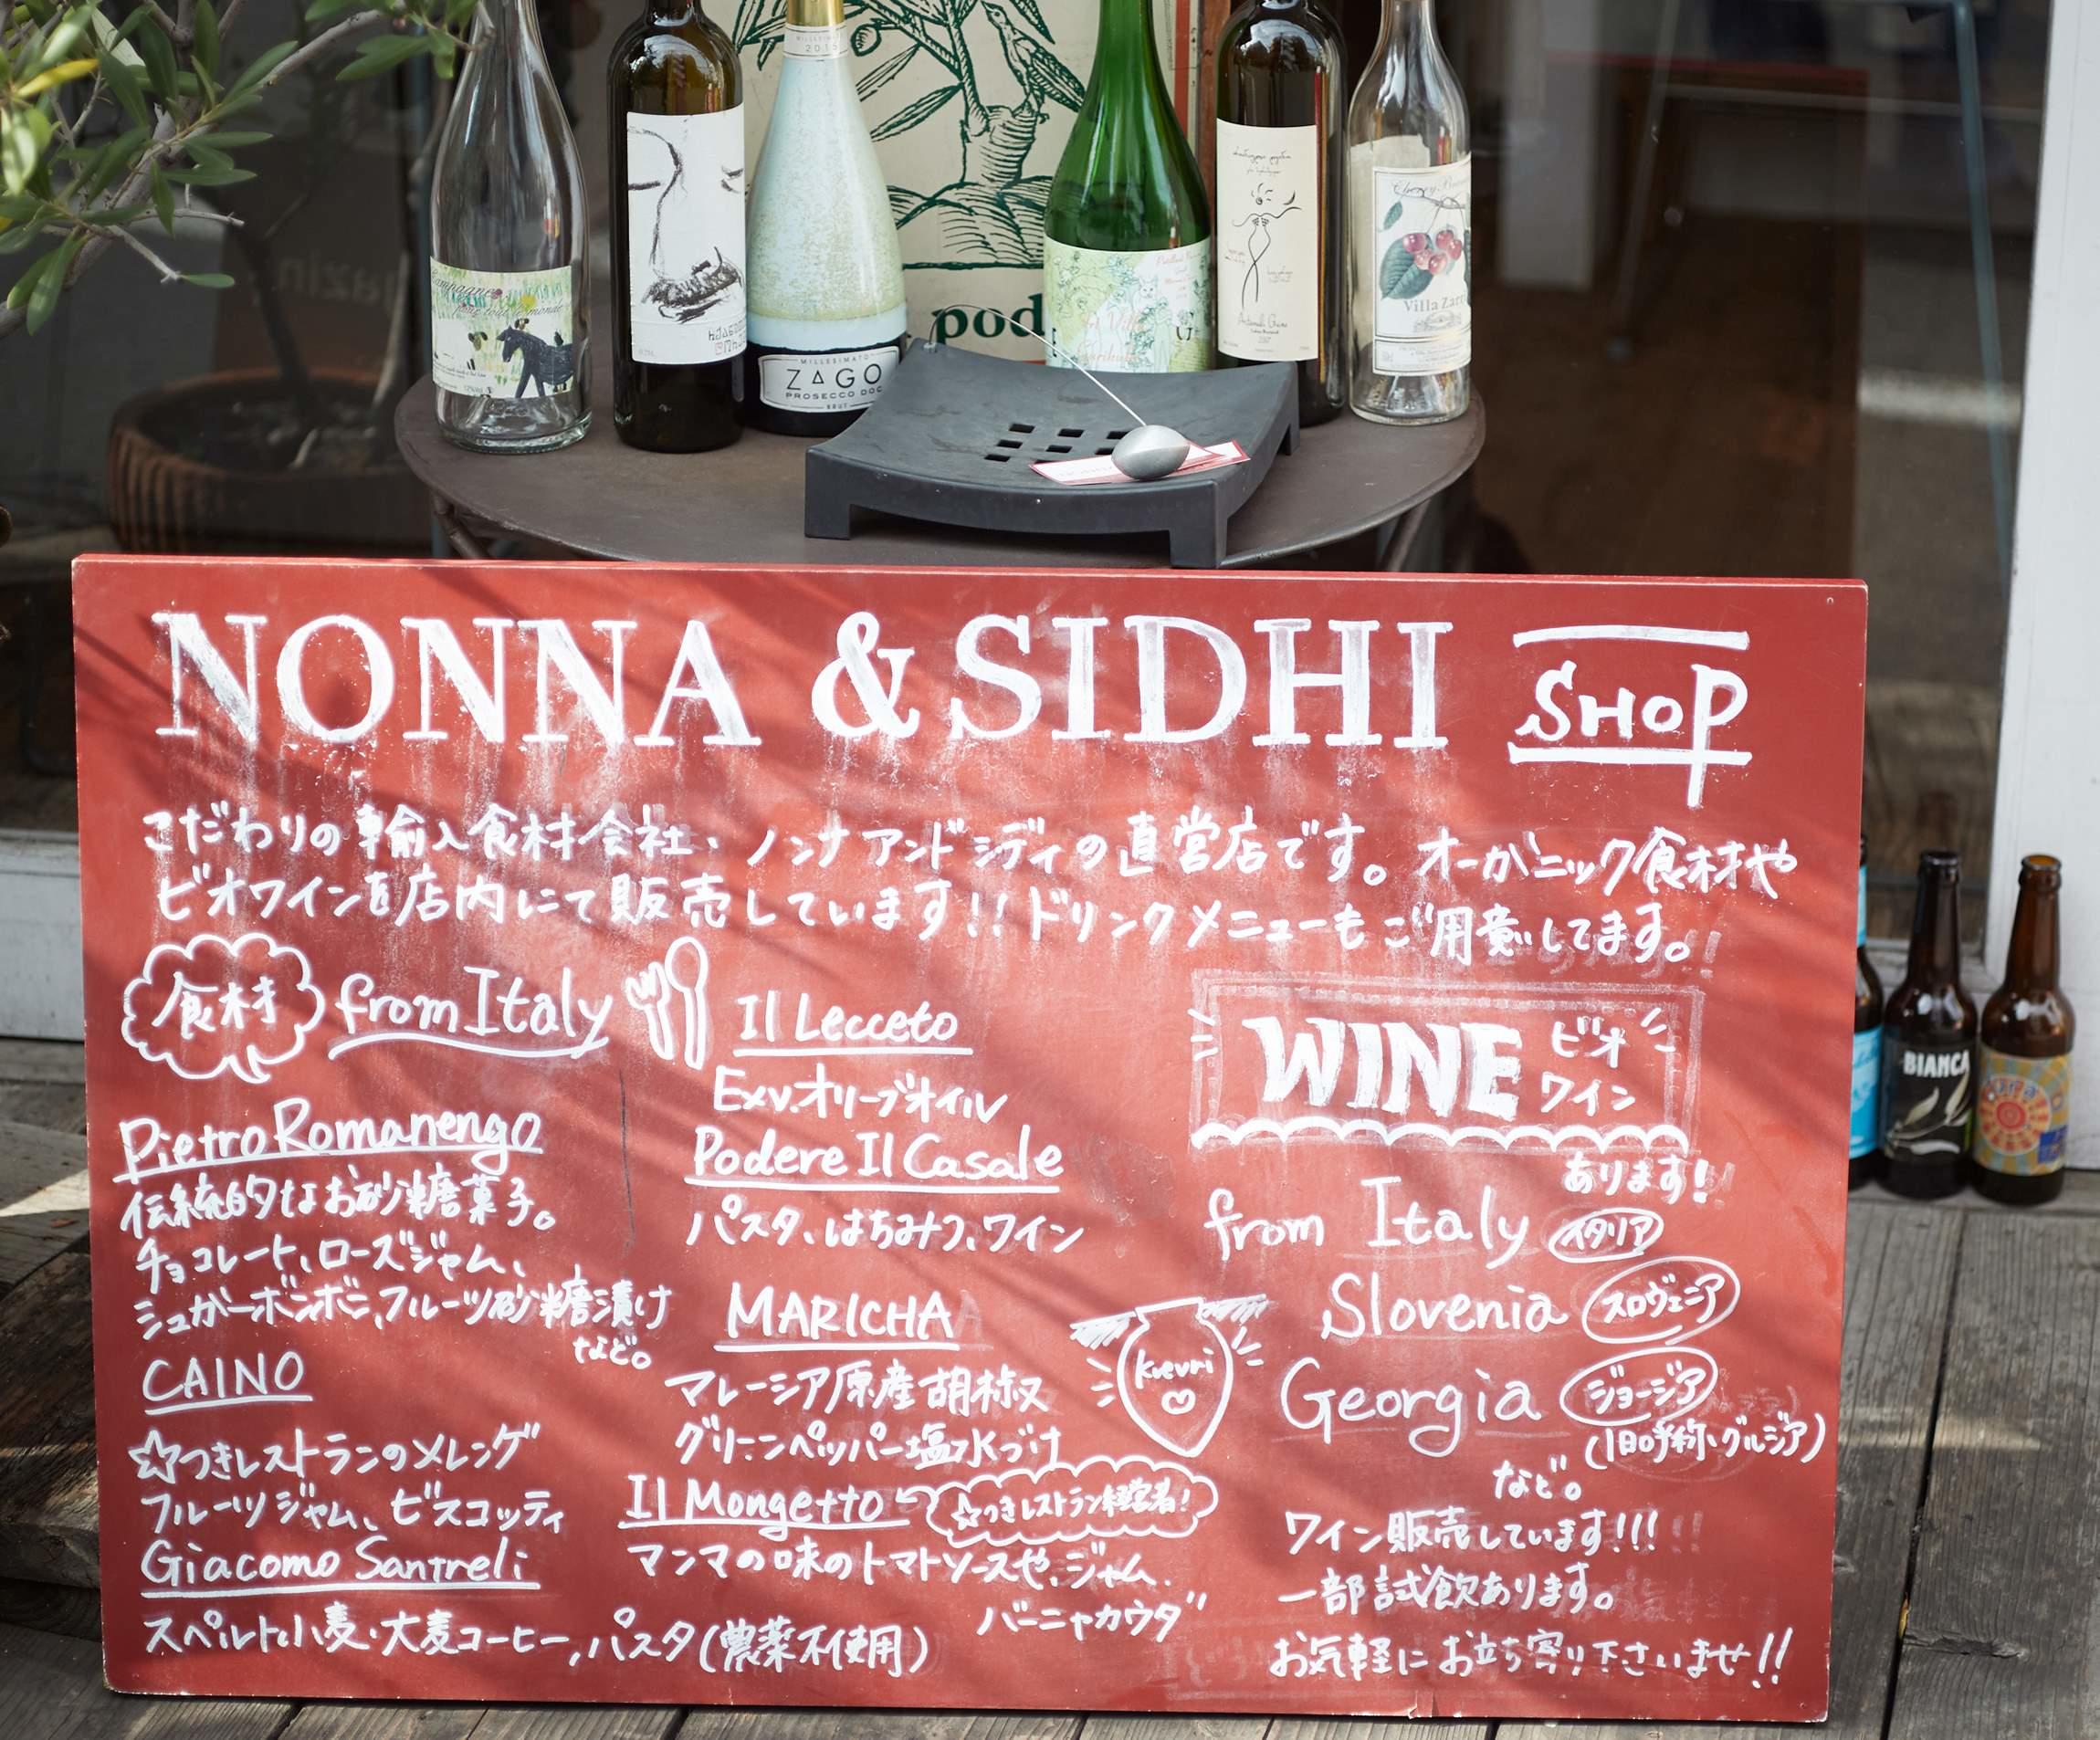 MILLESIMATO
2015
Campagne
pour tout le monde
MILLESIMATO
ZAGO
PROSECCO DOC
BRUT
pod
Cherry
Villa Zarri
BIANCA
NONNA & SIDHI SHOP
こだわりの輸入食材会社・ノンナアンドシディの直営店です。オーガニック食材や
ビオワインを店内にて販売しています!!ドリンクメニューもご用意してます。
食材 from Italy
Pietro Romanengo
伝統的なお砂糖菓子。
チョコレート、ローズジャム、
シュガーボンボン,フルーツ砂糖漬け
など。
CAINO
☆つきレストランのメレンゲ
フルーツジャム、ビスコッティ
Giacomo Santreli
スペルト小麦・大麦コーヒー,パスタ(農薬不使用)
Il Lecceto
Exv.オリーブオイル
Podere Il Casale
パスタ、はちみつ、ワイン
MARICHA
マレーシア原産胡椒
グリーンペッパー塩水づけ
Il Mongetto ☆つきレストラン経営者!
マンマの味のトマトソースや、ジャム.
バーニャカウダ
Kvevri
WINE ビオ
ワイン
あります!
from Italy イタリア
Slovenia スロヴェニア
Georgia ジョージア
(旧呼称、グルジア)
など。
ワイン販売しています!!!
一部試飲あります。
お気軽にお立ち寄り下さいませ!!